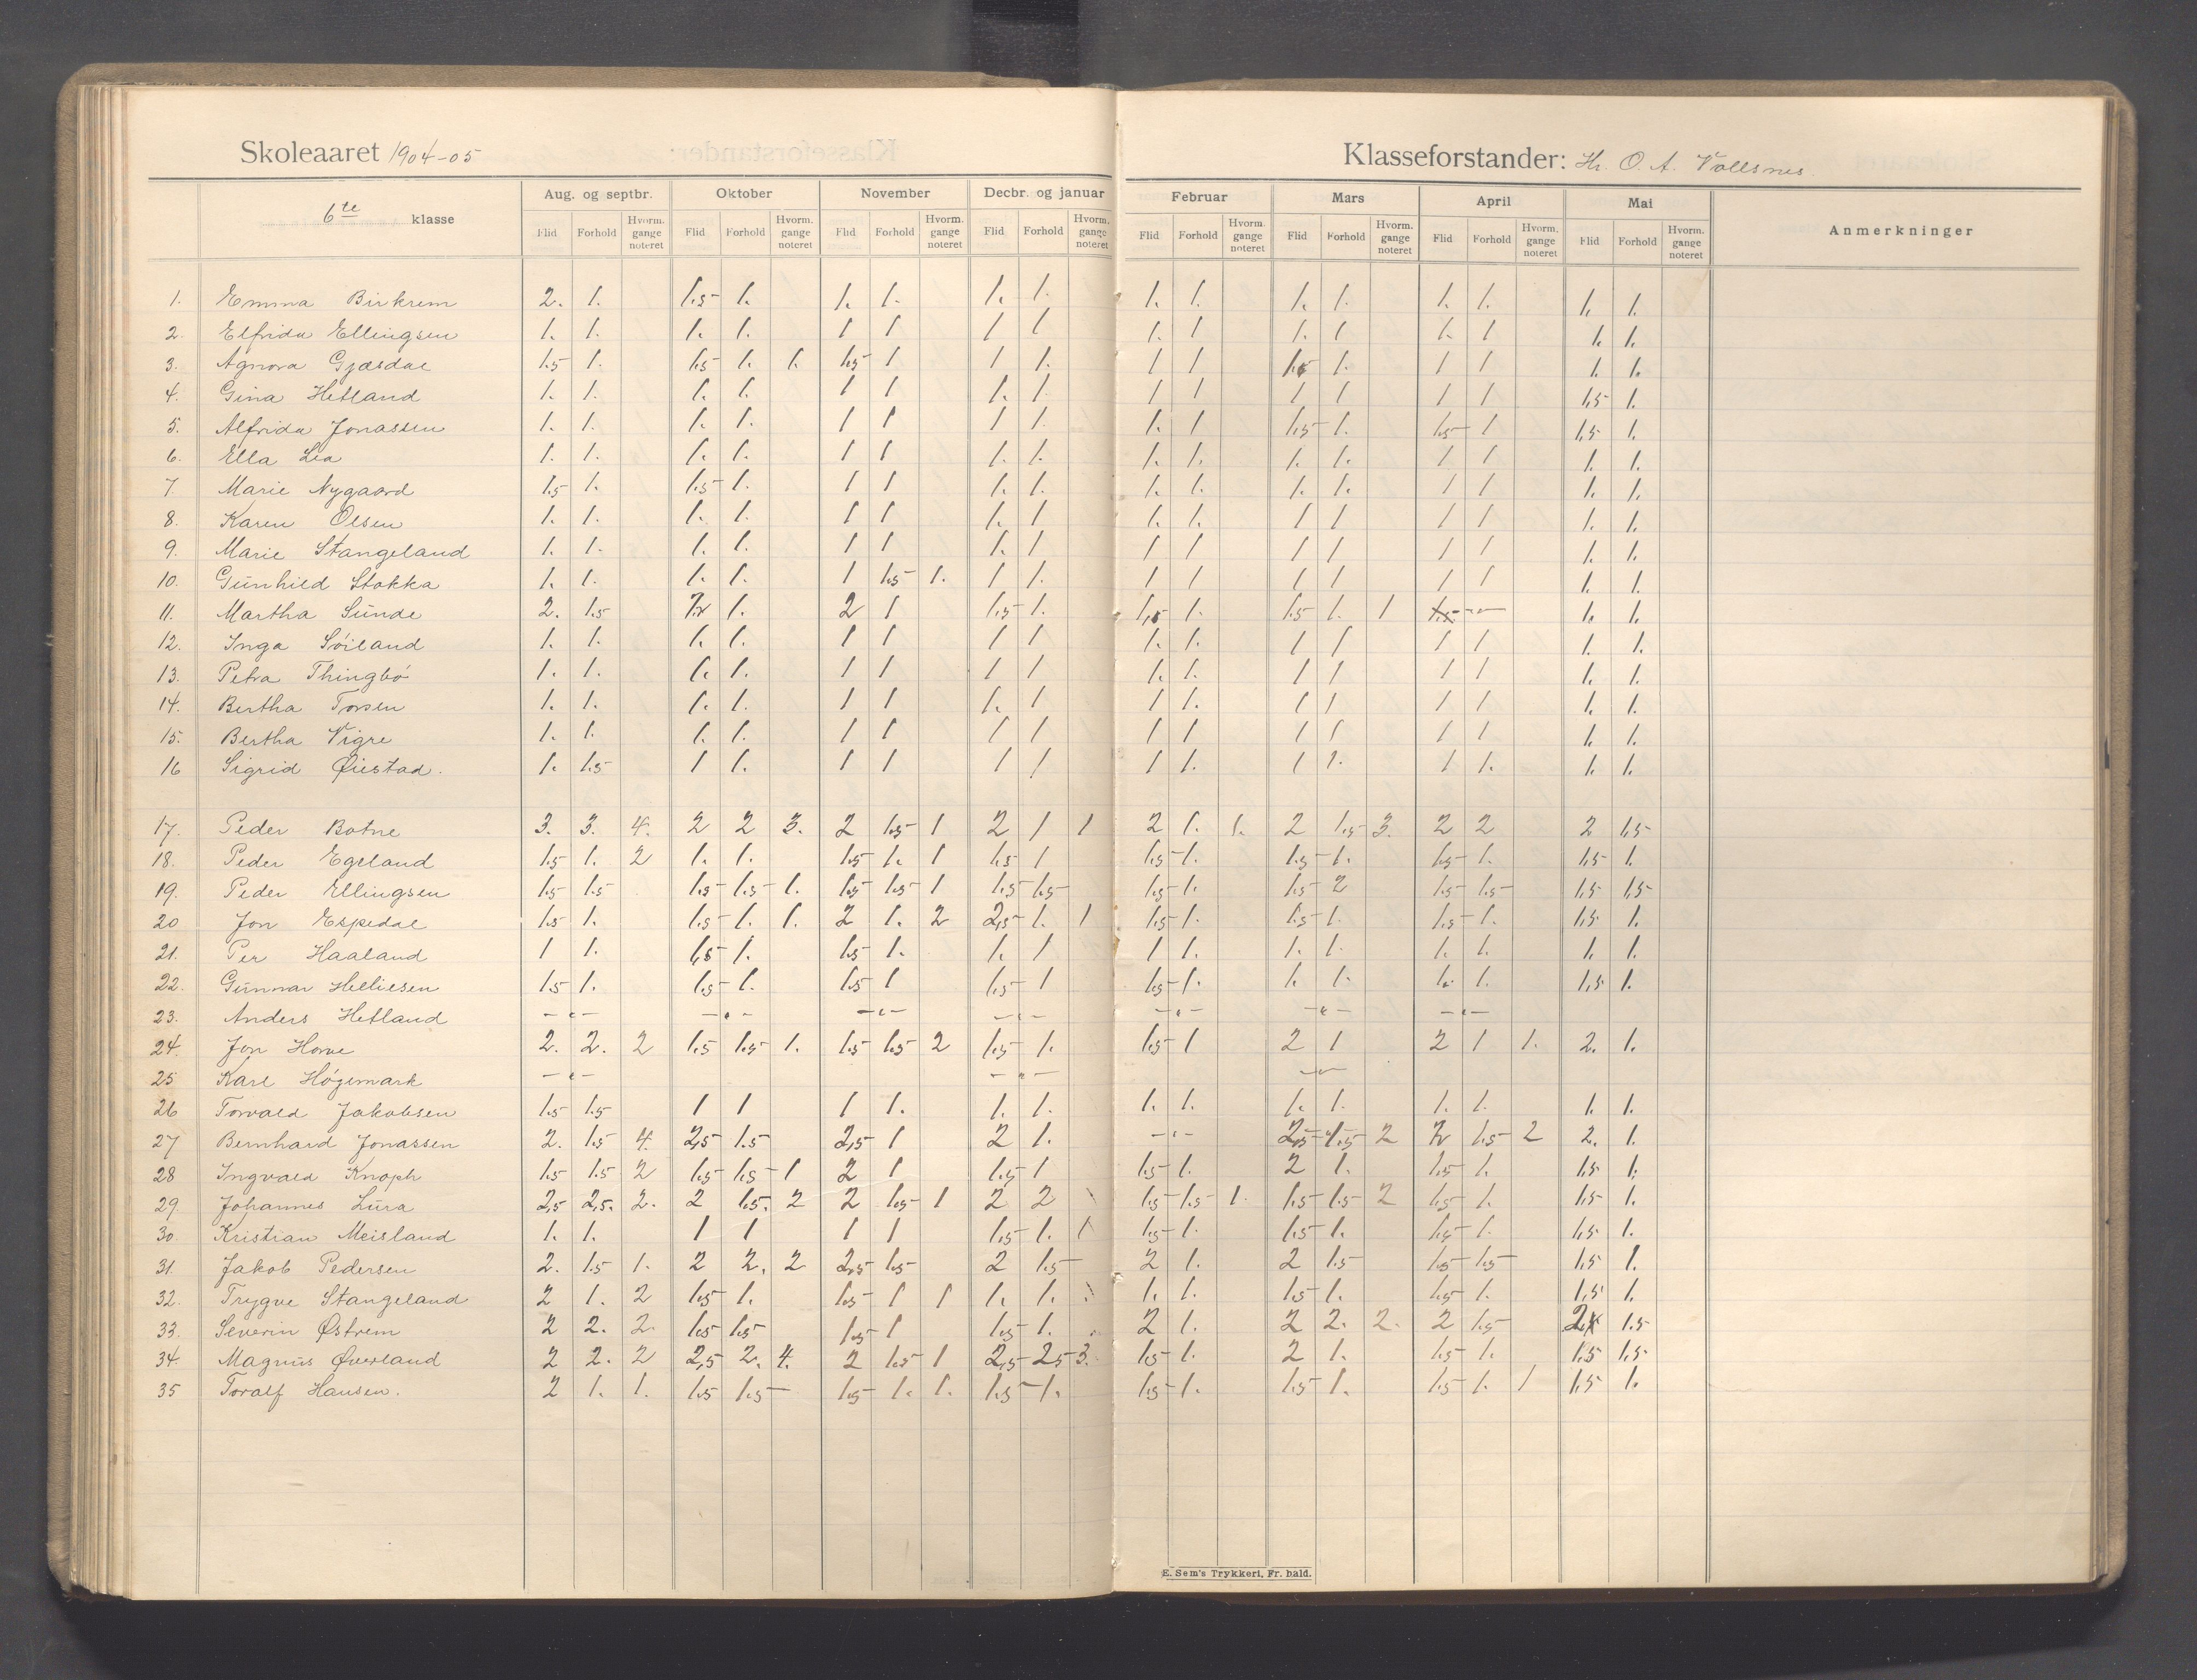 Skoleaaret 1904-05
Klasseforstander: Hr. O. A. Vollsnes.
6te klasse
Aug. og septbr. Oktober November Decbr. og januar Februar Mars April Mai Anmerkninger
Flid Forhold Hvorm. gange noteret Flid Forhold Hvorm. gange noteret Flid Forhold Hvorm. gange noteret Flid Forhold Hvorm. gange noteret Flid Forhold Hvorm. gange noteret Flid Forhold Hvorm. gange noteret Flid Forhold Hvorm. gange noteret Flid Forhold Hvorm. gange noteret
1. Emma Birkrem 2. 1. 1.5- 1. 1. 1. 1. 1. 1. 1. 1. 1. 1. 1. 1. 1.
2. Elfrida Ellingsen 1. 1. 1. 1. 1 1 1 1 1. 1 1. 1 1. 1 1. 1.
3. Agnora Gjæsdal 1.5 1. 1.5- 1. 1. 1.5- 1 1 1. 1 1 1. 1 1 1. 1.
4. Gina Hetland 1. 1. 1. 1. 1 1 1. 1 1 1 1 1 1 1 1,5- 1.
5. Alfrida Jonassen 1. 1. 1. 1. 1 1 1 1. 1. 1 1.5- 1. 1.5- 1 1,5 1.
6. Ella Lea 1. 1. 1. 1. 1 1 1. 1. 1. 1. 1. 1. 1 1 1. 1.
7. Marie Nygaard 1.5 1. 1.5- 1. 1 1 1. 1. 1. 1. 1. 1. 1 1 1. 1.
8. Karen Olsen 1. 1. 1. 1. 1 1 1. 1 1. 1. 1 1 1 1 1. 1.
9. Marie Stangeland 1. 1. 1. 1. 1 1 1. 1 1 1 1 1 1 1 1. 1.
10. Gunhild Stokka 1. 1. 1. 1. 1 1.5- 1. 1 1. 1 1 1 1 1 1 1. 1.
11. Martha Sunde 2. 1.5 1. 2 1 1.5- 1. 1,5 1. 1.5 1. 1 1.5- -"- 1. 1.
12. Inga Söiland 1. 1. 1. 1. 1 1 1 1 1. 1. 1 1 1 1 1. 1.
13. Petra Thingbö 1. 1. 1. 1. 1 1 1 1 1. 1. 1 1 1 1 1. 1.
14. Bertha Torsen 1. 1. 1. 1. 1 1 1. 1 1 1. 1 1 1 1 1. 1.
15. Bertha Vigre 1. 1. 1. 1. 1 1 1 1 1 1 1 1 1 1 1. 1.
16 Sigrid Øiestad. 1. 1.5 1 1. 1 1 1 1 1 1. 1 1. 1 1. 1. 1.
17. Peder Botne 3. 3. 4. 2 2 3. 2 1.5- 1 2 1 1 2 1. 1. 2 1.5- 3. 2 2 2 1,5-
18. Peder Egeland 1.5 1. 2 1. 1. 1.5- 1. 1 1.5 1 1.5- 1. 1.5- 1. 1.5- 1. 1,5- 1.
19. Peder Ellingsen 1.5 1.5 1.5- 1.5- 1. 1.5- 1.5- 1 1.5- 1.5- 1.5- 1. 1.5- 2 1.5- 1.5- 1,5- 1,5-
20 Jon Espedal 1.5 1. 1.5- 1. 1. 2 1. 2 2,5- 1. 1 1.5- 1. 1.5- 1. 1.5- 1. 1,5- 1.
21. Per Haaland 1 1. 1,5- 1. 1.5- 1. 1. 1 1 1. 1. 1. 1. 1. 1. 1.
22. Gunnar Helliesen 1.5 1. 1.5- 1. 1.5- 1 1.5- 1 1.5- 1. 1. 1. 1. 1. 1,5 1.
23. Anders Hetland -"- -"- -"- -"- -"- -"- -"-
24. Jon Horve 2. 2. 2 1.5 1.5- 1. 1.5- 1.5 2 1.5- 1. 1.5- 1 2 1 2 1 1. 2. 1.
25 Karl Högemark -"- -"- -"-
26 Torvald Jakobsen 1.5 1.5 1 1 1 1. 1. 1. 1. 1. 1. 1. 1. 1. 1. 1.
27 Bernhard Jonassen 2. 1.5 4. 2,5- 1.5 2,5 1 2 1. -"- 2,5- 1.5 2 1.5 2 2. 1.
28 Ingvald Knoph 1.5 1.5 2 1.5- 1.5- 1 2 1 1.5- 1 1.5- 1. 2 1. 1.5- 1. 1,5- 1.
29. Johannes Lura 2,5 2,5. 2. 2 1.5. 2 2 1.5- 1 2 2 1.5- 1.5- 1. 1.5- 1.5- 2 1.5- 1. 1,5- 1.
30. Kristian Meisland 1. 1. 1 1 1 1 1.5- 1. 1 1.5- 1. 1.5- 1. 1.5- 1. 1,5- 1.
31. Jakob Pedersen 2. 1.5 1. 2 2. 2 2,5- 1.5- 2 1.5- 2 1. 2 1.5- 1.5- 1.5- 1,5 1.
32. Trygve Stangeland 2 1. 2 1.5- 1. 1.5- 1 1 1. 1. 1. 1. 1.5- 1. 1.5- 1. 1,5 1.
33. Severin Østrem 2 2. 2. 1.5 1.5- 1.5- 1 1.5- 1. 2 1. 2 2. 2. 2 1.5- 2. 1.5
34. Magnus Øverland 2 2. 2 2,5 2. 4. 2 1.5- 1 2,5- 2.5 3. 1.5- 1. 2 1. 1.5- 1. 1.5 1,5-
35 Toralf Hansen. 2 1. 1. 1.5 1.5- 1.5- 1. 1. 1.5- 1. 1.5- 1. 1.5- 1. 1.5- 1. 1 1,5- 1.
E. Sem's Trykkeri, Fr. hald.